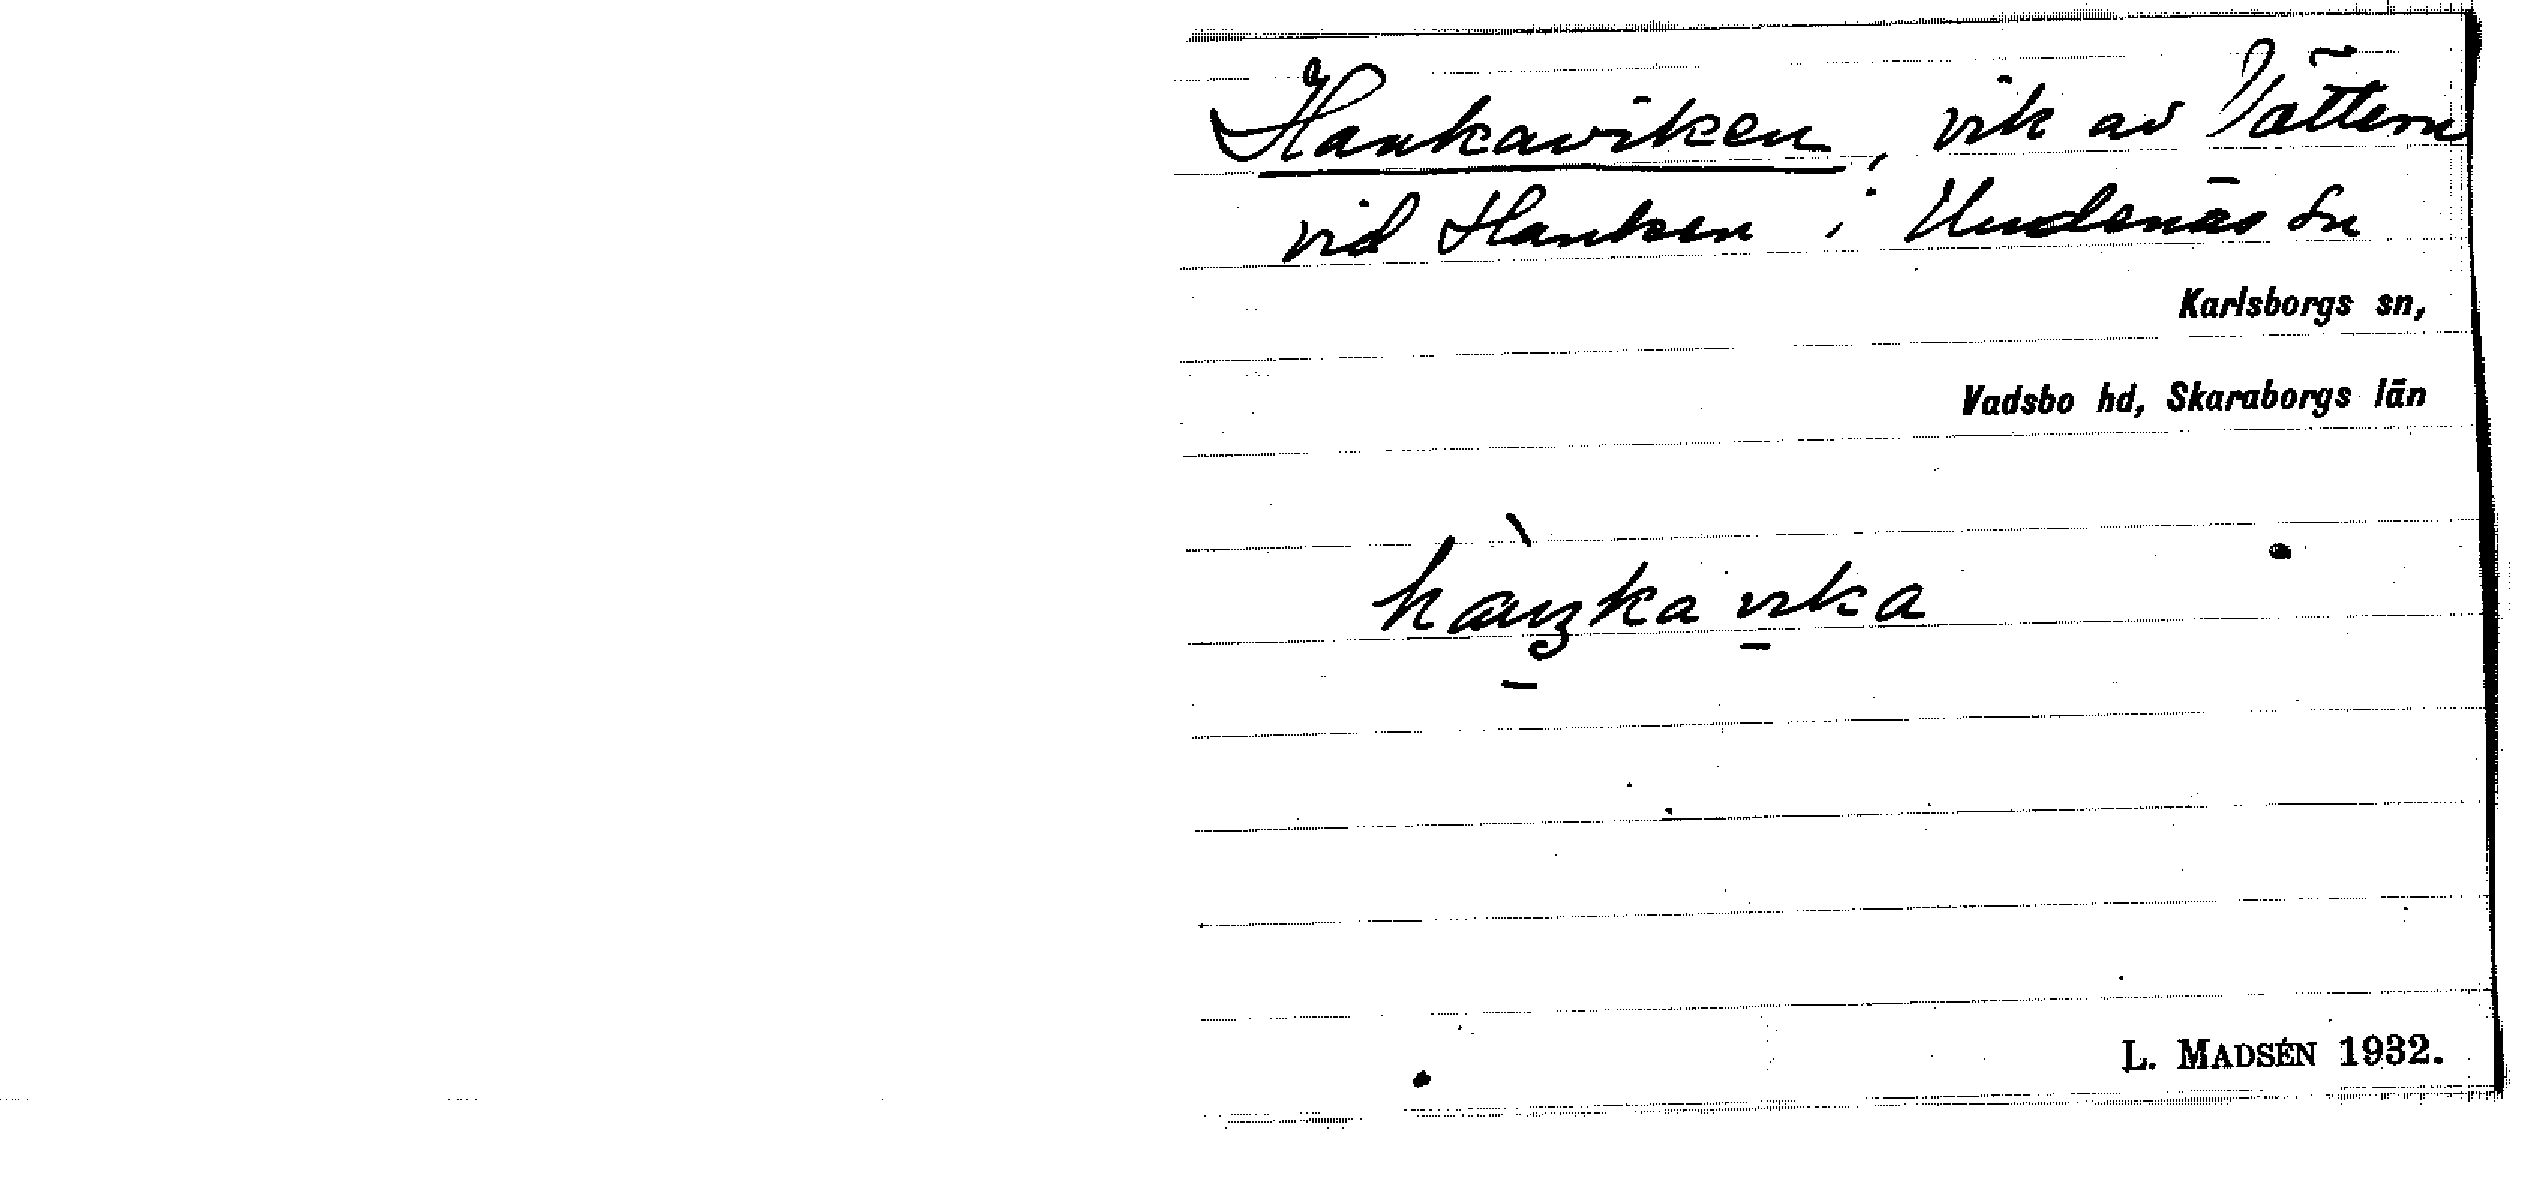 Hankaviken, vik av Vättern
vid Hanken i Undenäs sn
Karlsborgs sn,
Vadsbo hd, Skaraborgs län
hàŋka vika
L. MADSÉN 1932.